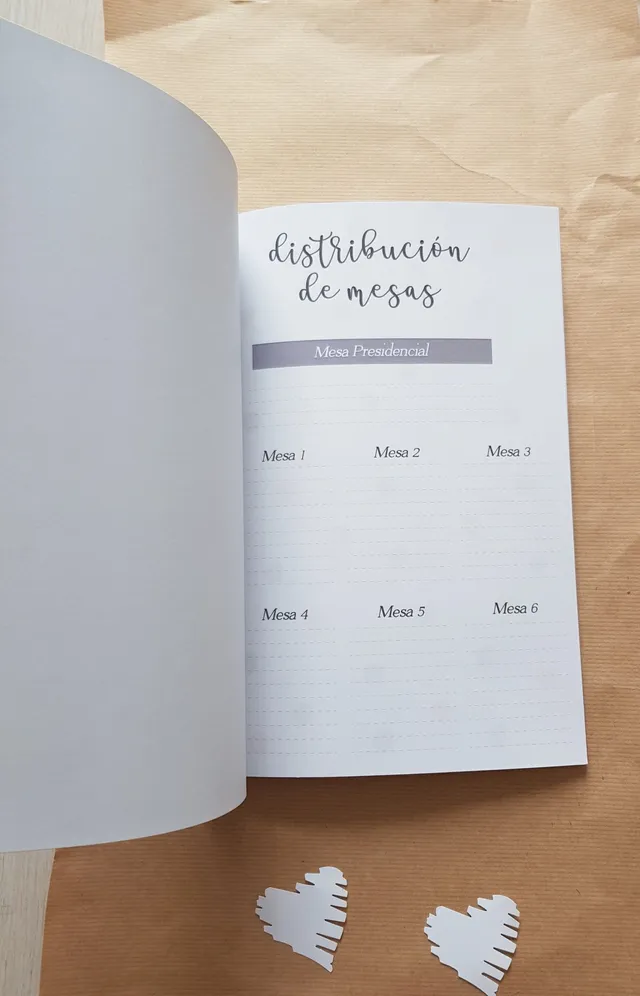 distribución
de mesas
Mesa Presidencial
Mesa 1 Mesa 2 Mesa 3
Mesa 4 Mesa 5 Mesa 6